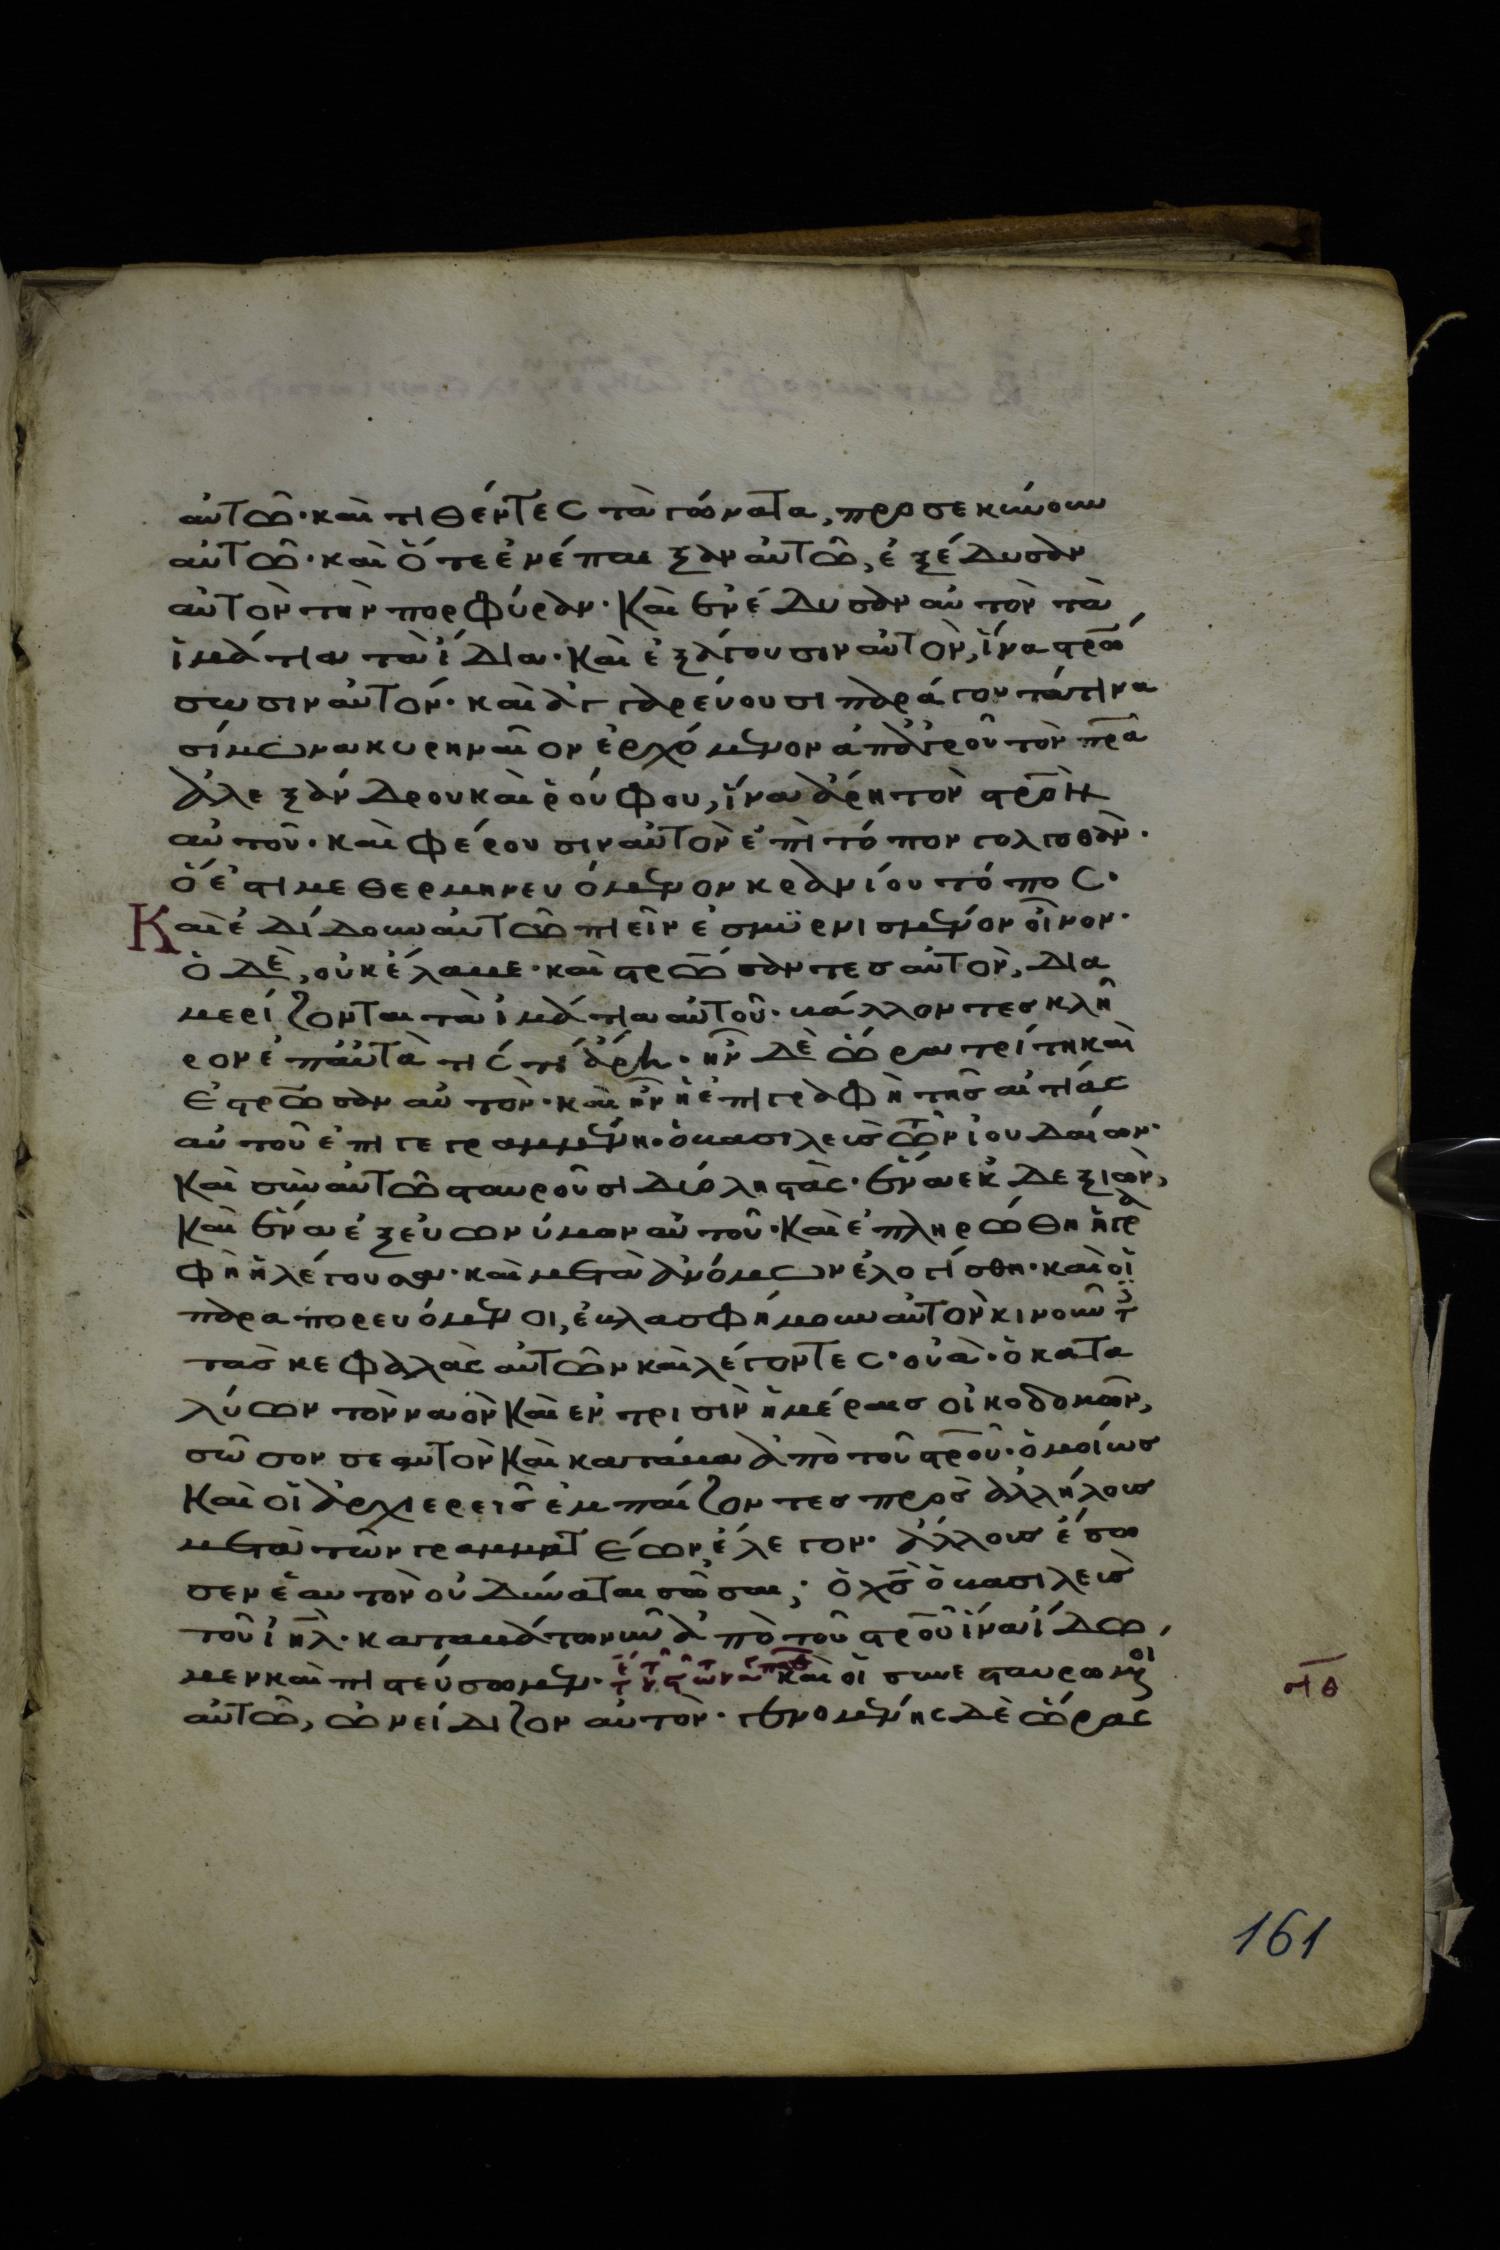 αὐτῶ· καὶ τιθέντες τὰ γόνατα, προσεκύνουν
αὐτῶ· καὶ ὅτε ἐνέπαιξαν αὐτῶ, ἐξέδυσαν
αὐτὸν τὴν πορφύραν· Καὶ ἐνέδυσαν αὐτὸν τὰ
ἱμάτια τὰ ἴδια· Καὶ ἐξάγουσιν αὐτὸν, ἵνα στρώ
σωσιν αὐτόν· καὶ ἀγγαρεύουσι παράγοντά τινα
σίμωνα κυρηναῖον ἐρχόμενον ἀπ' ἀγροῦ τὸν πρα
ἀλεξάνδρου καὶ ῥούφου, ἵνα ἄρη τὸν στρον
αὐτοῦ· καὶ φέρουσιν αὐτὸν ἐπὶ τόπον γολγοθὰν·
ὅ ἐστι μεθερμηνευόμενον κρανίου τόπος·
Καὶ ἐδίδουν αὐτῶ πιεῖν ἐσμυρνισμένον οἶνον·
ὁ δὲ, οὐκ ἔλαβε· καὶ στρώσαντες αὐτὸν, δια
μερίζονται τὰ ἱμάτια αὐτοῦ· βάλλοντες κλῆ
ρον ἐπ' αὐτὰ τίς τί ἄρη· ἦν δὲ ὥρα τρίτη καὶ
ἐστρωσαν αὐτὸν· καὶ ἦν ἡ ἐπιγραφὴ τῆς αἰτίας
αὐτοῦ ἐπιγεγραμμένη· ὁ βασιλεὺς τῶν ἰουδαίων·
Καὶ σὺν αὐτῶ σταυροῦσι δύο ληστὰς· ἕνα ἐκ δεξιῶν,
Καὶ ἕνα ἐξ εὐωνύμων αὐτοῦ· Καὶ ἐπληρώθη ἡ γρα
φὴ ἡ λέγουσα· καὶ μετὰ ἀνόμων ἐλογίσθη· καὶ οἱ
παραπορευόμενοι, ἐβλασφήμουν αὐτὸν κινοῦντ
τὰς κεφαλὰς αὐτῶν καὶ λέγοντες· οὐὰ· ὁ κατα
λύων τὸν ναὸν Καὶ ἐν τρισὶν ἡμέραις οἰκοδομῶν,
σῶσον σεαυτὸν Καὶ κατάβα ἀπὸ τοῦ στροῦ· ὁμοίως
Καὶ οἱ ἀρχιερεῖς ἐμπαίζοντες πρὸς ἀλλήλους
μετὰ τῶν γραμματέων, ἔλεγον· ἄλλους ἔσω
σεν ἑαυτὸν οὐ δύναται σῶσαι; ὁ χς ὁ βασιλεὺς
τοῦ ιηλ· καταβάτω νῦν ἀπὸ τοῦ στροῦ ἵνα ἴδω
μεν καὶ πιστεύσωμεν· καὶ οἱ συνεσταυρωμένοι
αὐτῶ, ὠνείδιζον αὐτὸν· γενομένης δὲ ὥρας
161